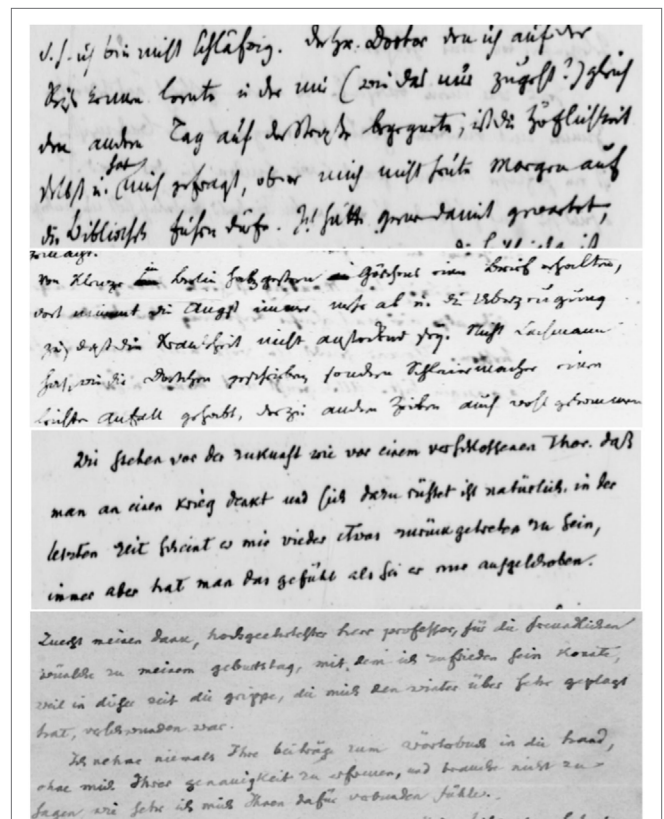 d. h. ich bin nicht schläfrig. Der Hr. Doctor den ich auf der
kennen lernte u der mir (wie das nur zugeht?) gleich
den andern Tag auf der Straße begegnete, ist die Höflichkeit
selbst u. hat mich gefragt, ob er mich nicht heute Morgen auf
die Bibliothek führen dürfe. Ich hätte gerne damit gewartet,
von Klenze in Berlin hab gestern Göschens einen Brief erhalten,
dort nimmt die Angst immer mehr ab u. die Überzeugung
zu, daß die Krankheit nicht ansteckend sey. Nicht Lachmann
hat, wie die Dortchen geschrieben sondern Schleiermacher einen
leichten Anfall gehabt, der zu andern Zeiten auch wohl gekommen
Wir stehen vor der zukunft wie vor einem verschlossenen Thor. daß
man an einen krieg denkt und sich dazu rüstet ist natürlich. in der
letzten zeit scheint er mir wieder etwas zurückgetreten zu sein,
immer aber hat man das gefühl als sei er nur aufgeschoben.
Zuerst meinen dank, hochgeehrtester herr professor, für die freundlichen
wünsche zu meinem geburtstag, mit dem ich zufrieden sein konte,
weil in dieser zeit die grippe, die mich den winter über sehr geplagt
hat, verschwunden war.
Ich nehme niemals Ihre beiträge zum wörterbuch in die hand,
ohne mich Ihrer genauigkeit zu erfreuen, und brauche nicht zu
sagen wie sehr ich mich Ihnen dafür verbunden fühle.